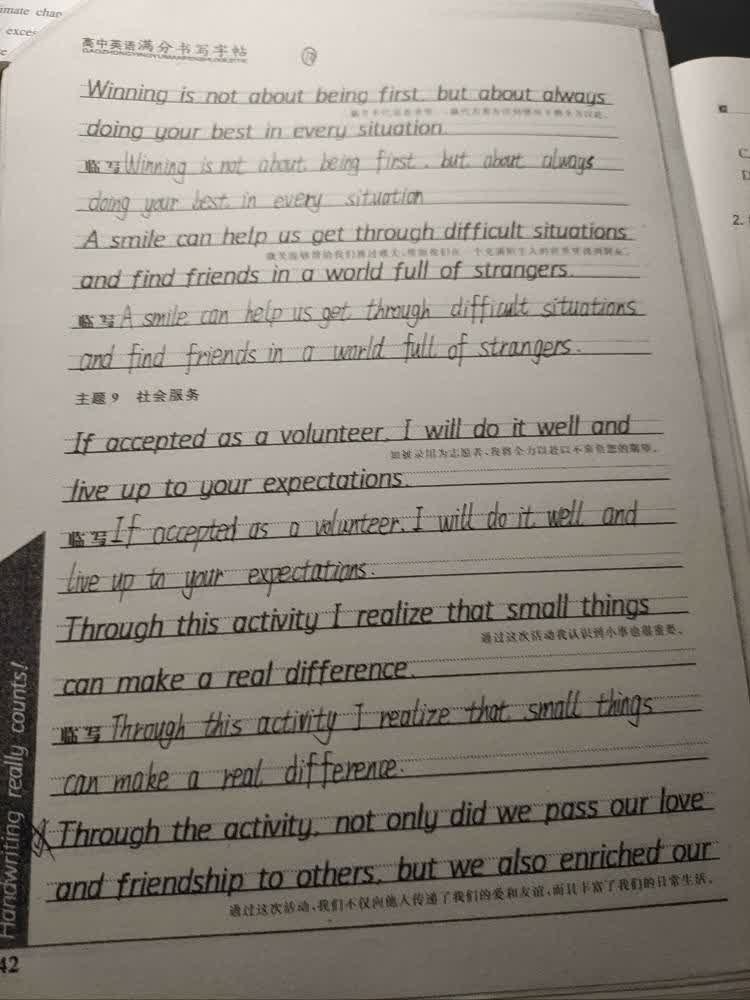 imate char
exces
高中英语满分书写字帖
GAOZHONGYINGYUMANFENSHUXIEZITIE
Winning is not about being first, but about always
doing your best in every situation.
临写 Winning is not about being first, but about always
doing your best in every situation
A smile can help us get through difficult situations
and find friends in a world full of strangers.
临写 A smile can help us get through difficult situations
and find friends in a world full of strangers.
主题9 社会服务
If accepted as a volunteer, I will do it well and
如被录用为志愿者,我将全力以赴以不辜负您的期望。
live up to your expectations.
临写 If accepted as a volunteer, I will do it well and
live up to your expectations.
Through this activity I realize that small things
通过这次活动我认识到小事也很重要。
can make a real difference.
临写 Through this activity I realize that small things
can make a real difference.
Through the activity, not only did we pass our love
and friendship to others, but we also enriched our
通过这次活动,我们不仅向他人传递了我们的爱和友谊,而且丰富了我们的日常生活。
Handwriting really counts!
42
C
D
2.